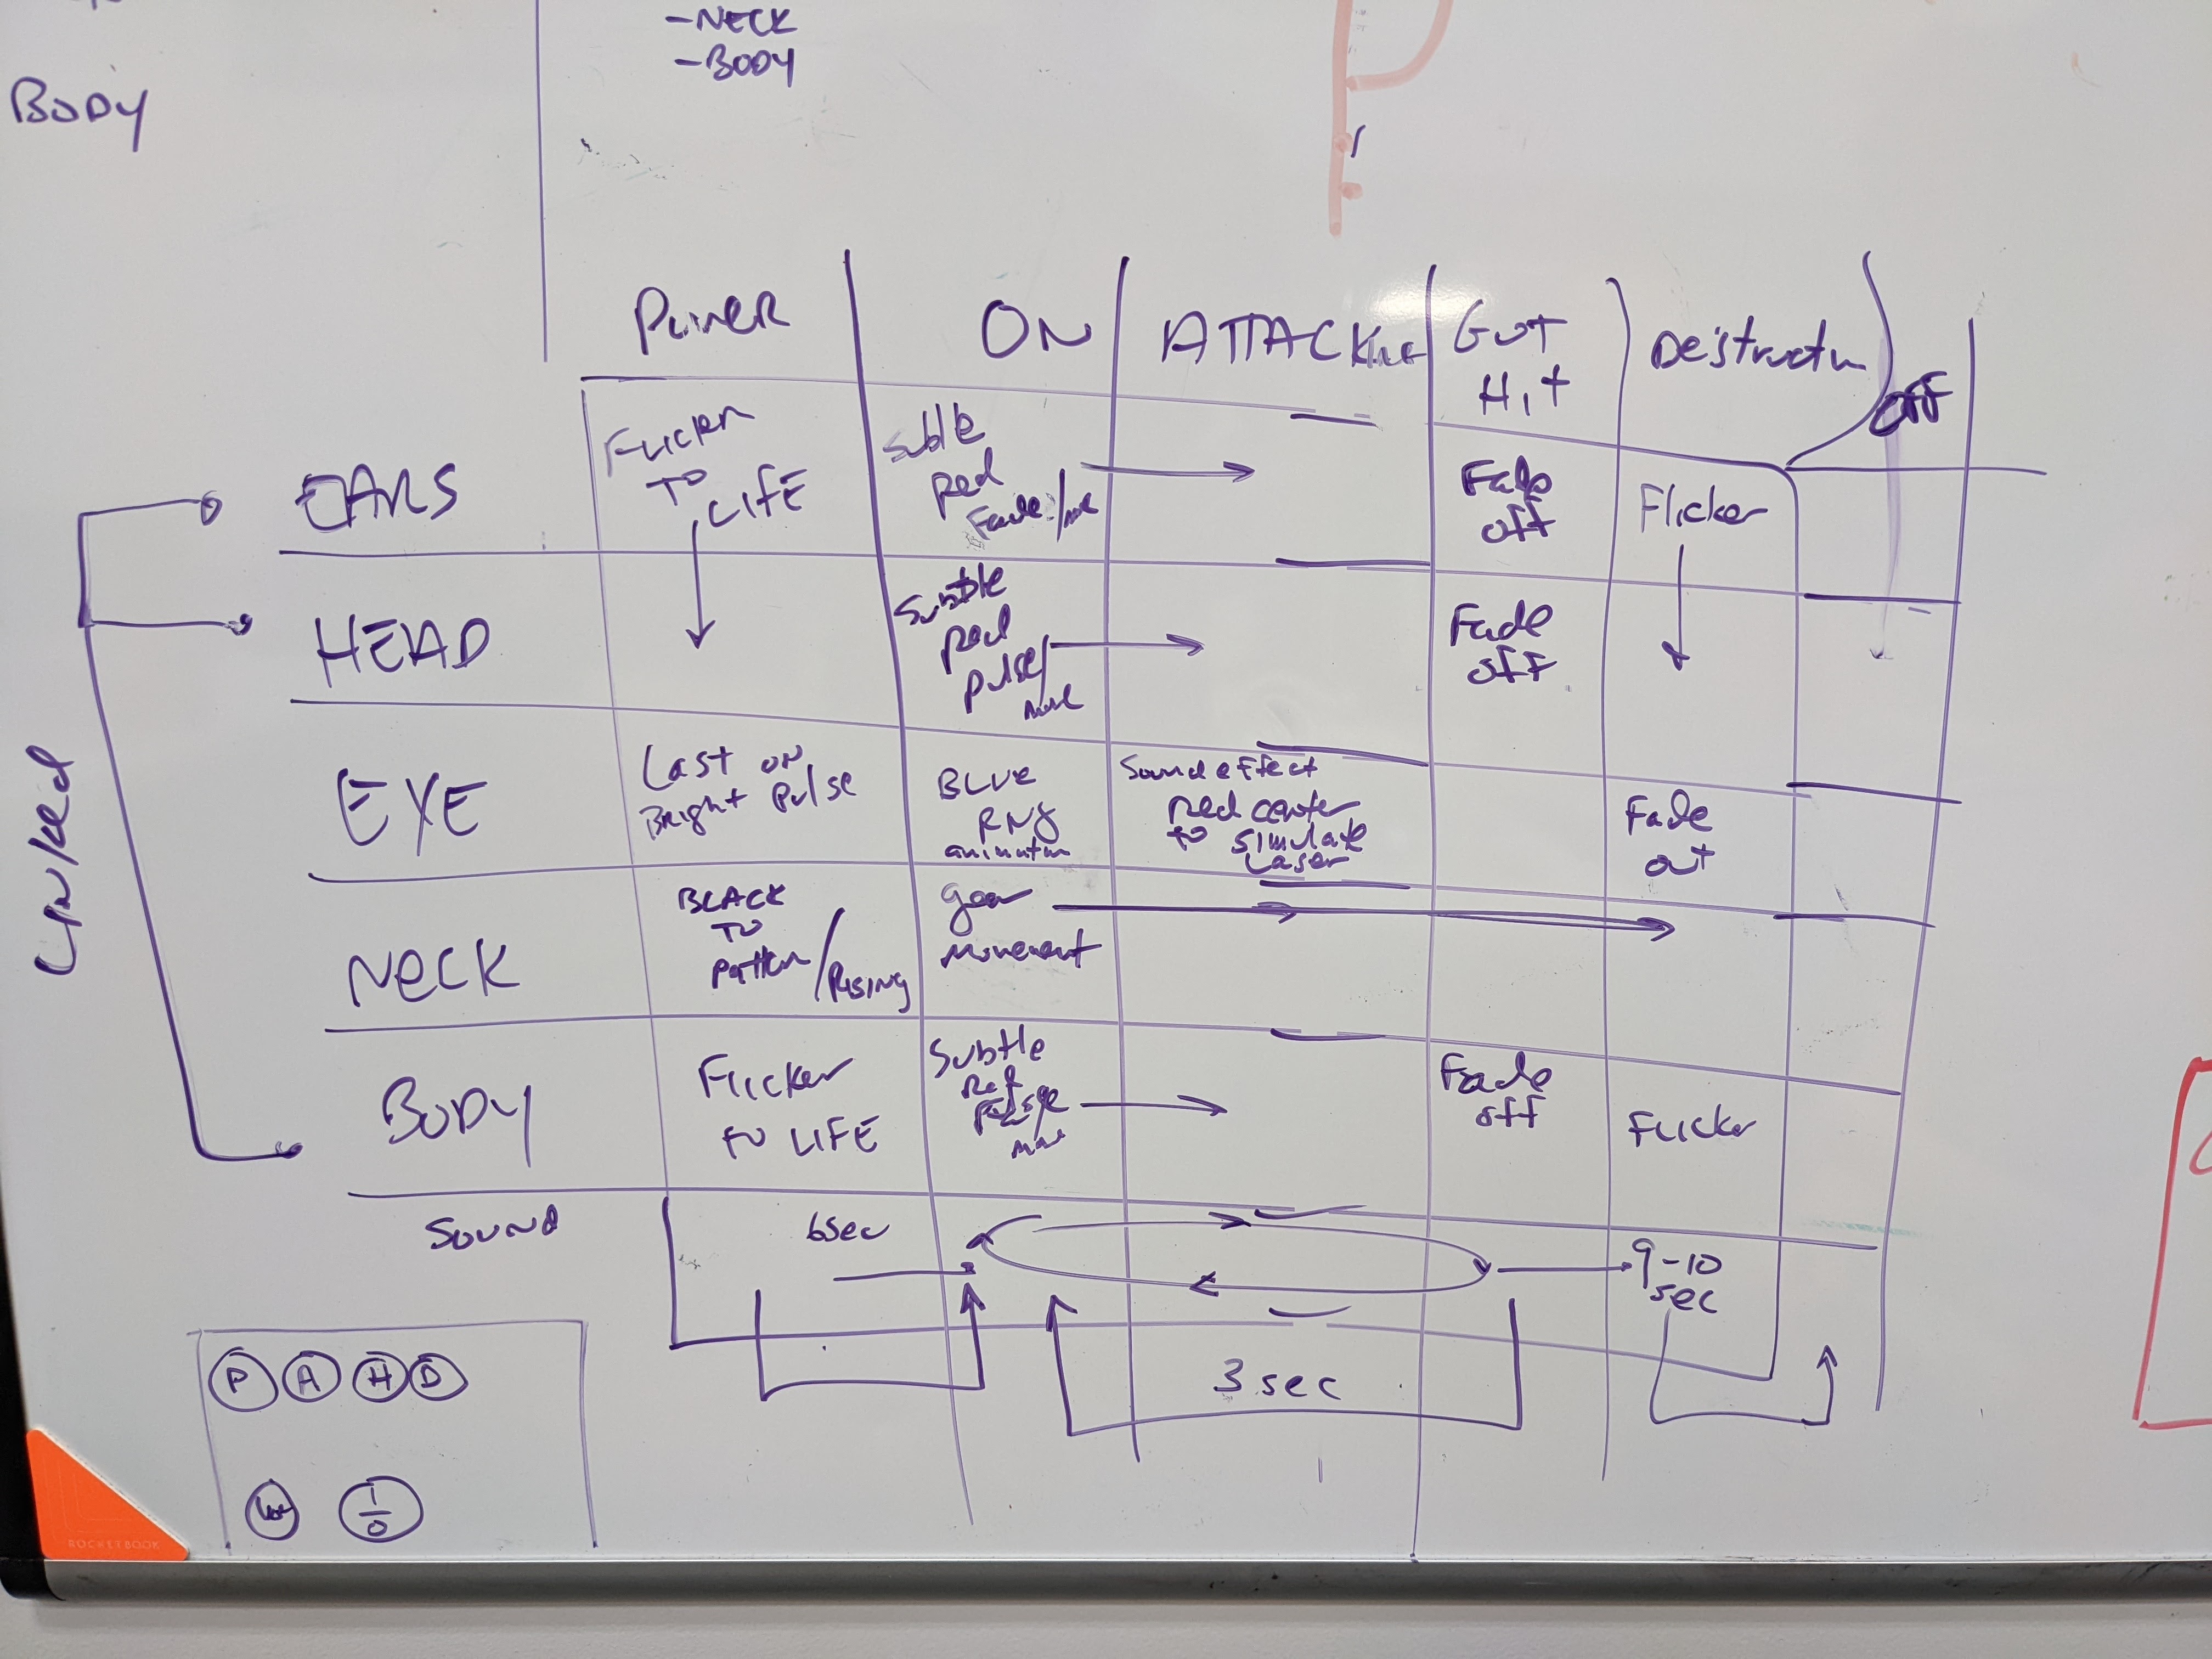 -NECK
-BODY
BODY
POWER
ON
ATTACK
GOT
HIT
OFF
EARS
FLICKER
TO
LIFE
Subtle
Red
Fade
Fade
off
Flicker
HEAD
Subtle
Red
Pulse/
Fade
off
Linked
EYE
Last on
Bright Pulse
BLUE
RING
animation
Sound effect
Red center
to simulate
Laser
Fade
out
NECK
BLACK
TO
Pattern/
Rising
gear
movement
BODY
Flicker
TO LIFE
Subtle
Fade
off
Flicker
SOUND
6sec
9-10
sec
3 sec
P A H D
1
0
ROCKETBOOK